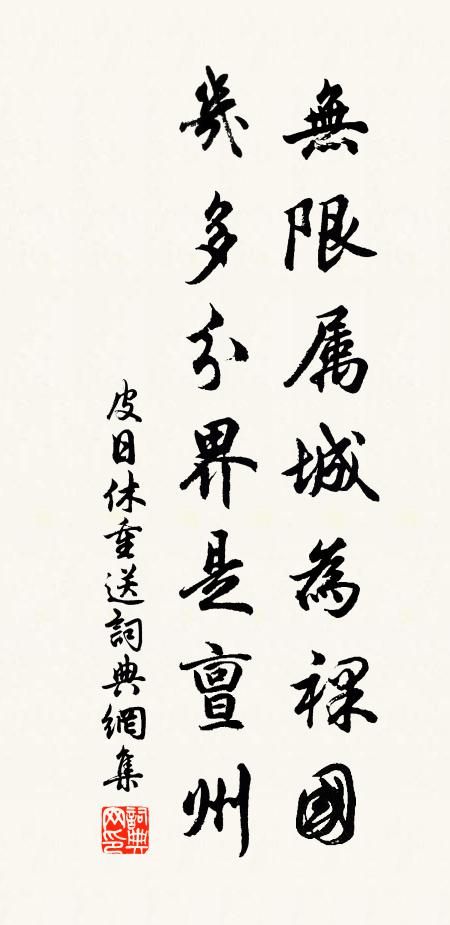 無限属城為裸國
幾多分界是亶州
皮日休重送詞典網集
詞典網印